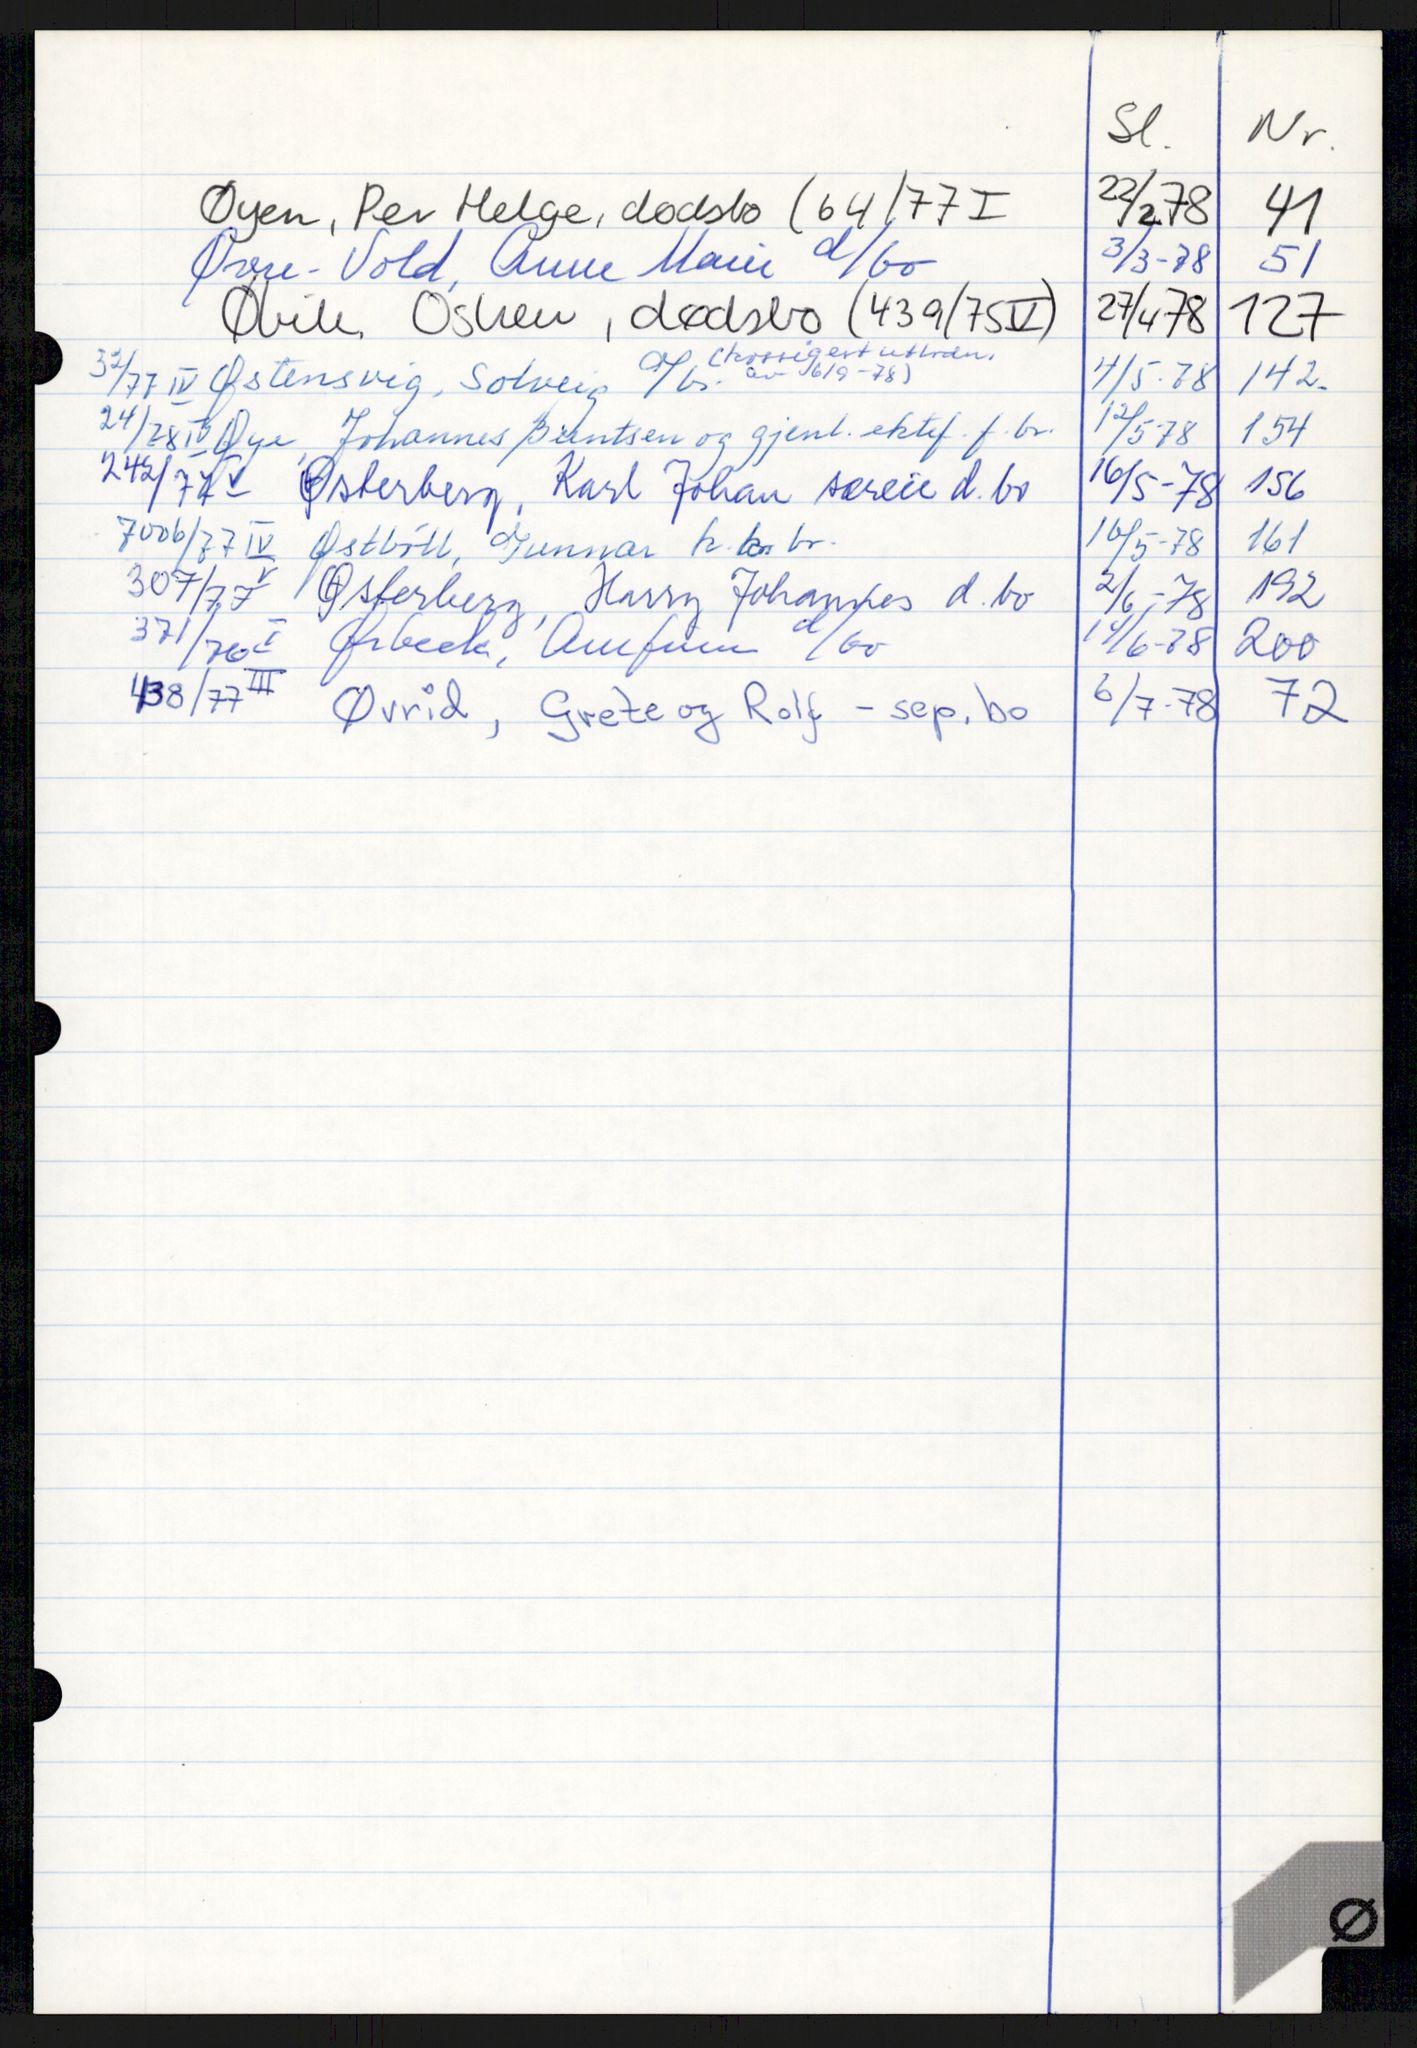 Sl. Nr.
Øyen, Per Helge, dødsbo (64/77 I 22/2 78 41
Øvre-Vold, Anne Marie d/bo 3/3-78 51
Øvik, Oskar, dødsbo (439/75 V) 27/4 78 127
(korrigert utlodn.
32/77 IV Østensvig, Solveig d/br. av 6/9-78) 4/5-78 142.
24/78 IV Øye, Johannes Berntsen og gjenl. ektef. f. br. 12/5-78 154
242/77 V Østerberg, Karl Johan særeie d. bo 16/5-78 156
7006/77 IV Østböll, Gunnar k. br. 16/5-78 161
307/77 V Østerberg, Harry Johannes d. bo 2/6-78 192
371/76 I Ørbeck, Arnfinn d/bo 14/6-78 200
438/77 III Øvrid, Grete og Rolf - sep. bo 6/7-78 72
Ø